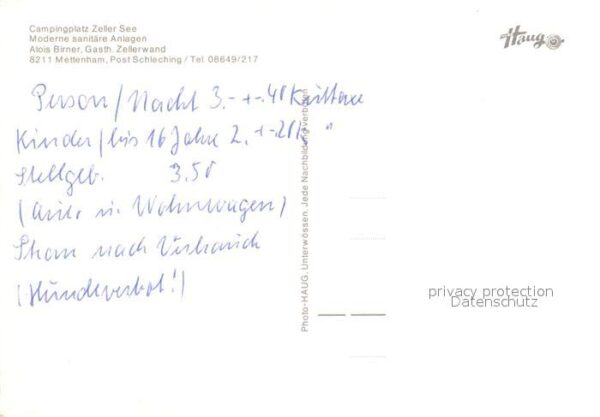 Campingplatz Zeller See
Moderne sanitäre Anlagen
Alois Birner, Gasth. Zellerwand
8211 Mettenham, Post Schleching / Tel. 08649/217
Haug
Person / Nacht 3.- +-.40 Kurtaxe
Kinder / bis 16 Jahre 2.- +-.20 K. "
Stellgeb. 3.50
(Auto u. Wohnwagen)
Strom nach Verbrauch
(Hundeverbot!)
Photo-HAUG, Unterwössen. Jede Nachbildung verboten
privacy protection
Datenschutz